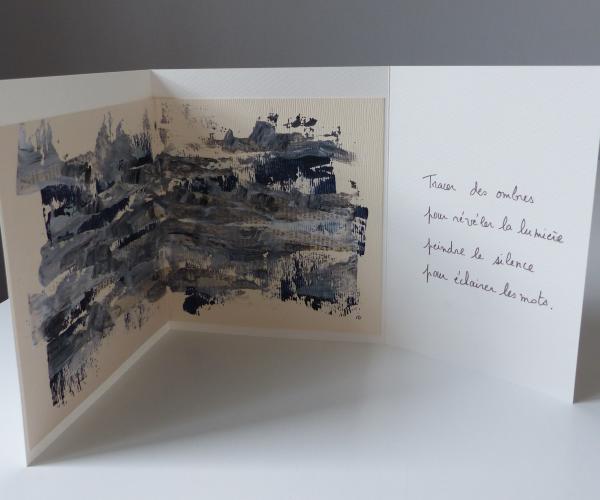 Tracer des ombres
pour révéler la lumière
peindre le silence
pour éclairer les mots.